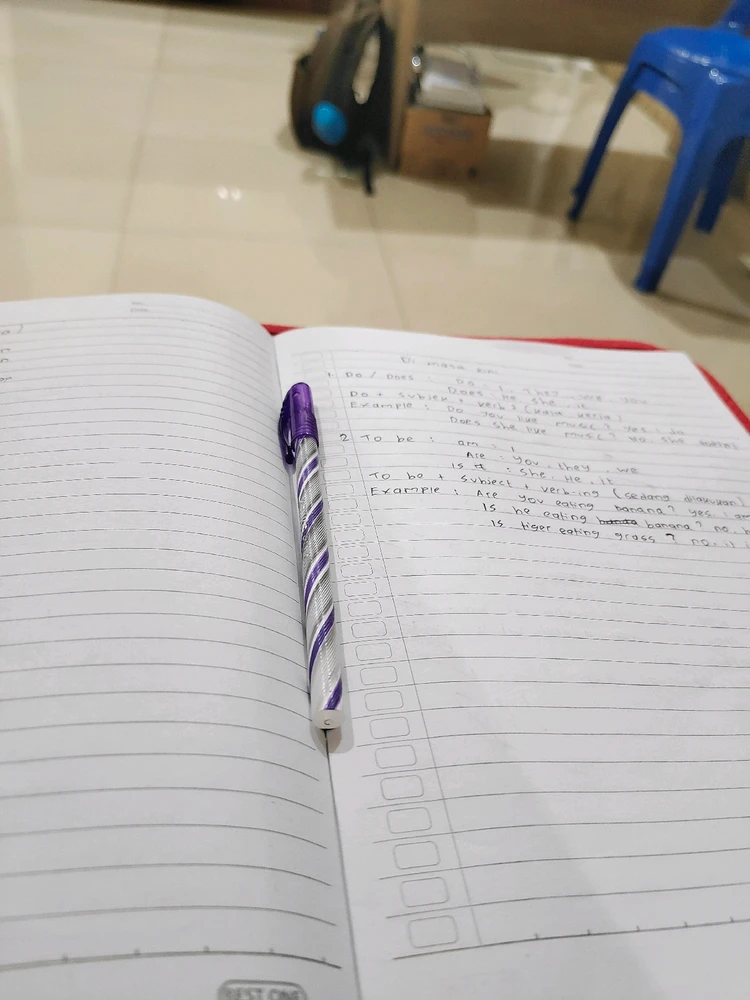 Di masa kini
1. Do / Does : Do : I, They, we, you
Does : He, she, it
Do + subjek + verb 1 (kata kerja)
Example : Do you like music? Yes I do
Does she like music? no she
2. To be : am : I
Are : you, they, we
Is : she, He, it
To be + subject + verb-ing (sedang dilakukan)
Example : Are you eating banana? yes, I am
Is he eating banana? no,
Is tiger eating grass? no, it
BEST ONE